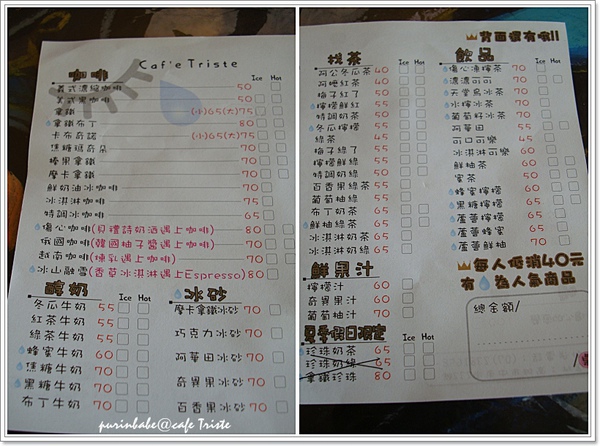 Caf'e Triste
咖啡 Ice Hot
義式濃縮咖啡 50
美式黑咖啡 50
拿鐵 (小)65(大)75
拿鐵布丁 80
卡布奇諾 (小)65(大)75
焦糖瑪奇朵 70
榛果拿鐵 70
摩卡拿鐵 70
鮮奶油冰咖啡 70
冰淇淋咖啡 75
特調冰咖啡 65
傷心咖啡(貝禮詩奶酒遇上咖啡) 80
俄國咖啡(韓國柚子醬遇上咖啡) 70
越南咖啡(煉乳遇上咖啡) 70
冰山融雪(香草冰淇淋遇上Espresso) 80
醇奶 Ice Hot
冬瓜牛奶 55
紅茶牛奶 55
綠茶牛奶 55
蜂蜜牛奶 60
焦糖牛奶 70
黑糖牛奶 70
布丁牛奶 70
冰砂
摩卡拿鐵冰砂 70
巧克力冰砂 70
阿華田冰砂 70
奇異果冰砂 70
百香果冰砂 70
背面還有喔!!
找茶 Ice Hot
阿公冬瓜茶 40
阿嬤紅茶 40
梅子紅了 50
檸檬鮮紅 50
特調奶茶 50
冬瓜檸檬 50
綠茶 45
梅子綠了 55
檸檬鮮綠 55
特調奶綠 55
百香果綠茶 55
葡萄柚綠 55
布丁奶茶 60
冰淇淋奶茶 65
冰淇淋奶綠 65
鮮果汁
檸檬汁 60
奇異果汁 60
葡萄柚汁 70
夏季假日限定
珍珠奶茶 65
珍珠奶綠 65
拿鐵珍珠 80
飲品 Ice Hot
傷心凍檸茶 70
濃濃可可 70
天堂鳥冰茶 70
水檸冰茶 70
葡萄籽冰茶 70
阿華田 55
可口可樂 45
冰淇淋可樂 60
鮮柚茶 60
蜜茶 50
蜂蜜檸檬 60
黑糖檸檬 65
蘆薈檸檬 65
蘆薈蜂蜜 65
蘆薈鮮柚 70
每人低消40元
有 為人氣商品
總金額/
purinbabe@cafe Triste